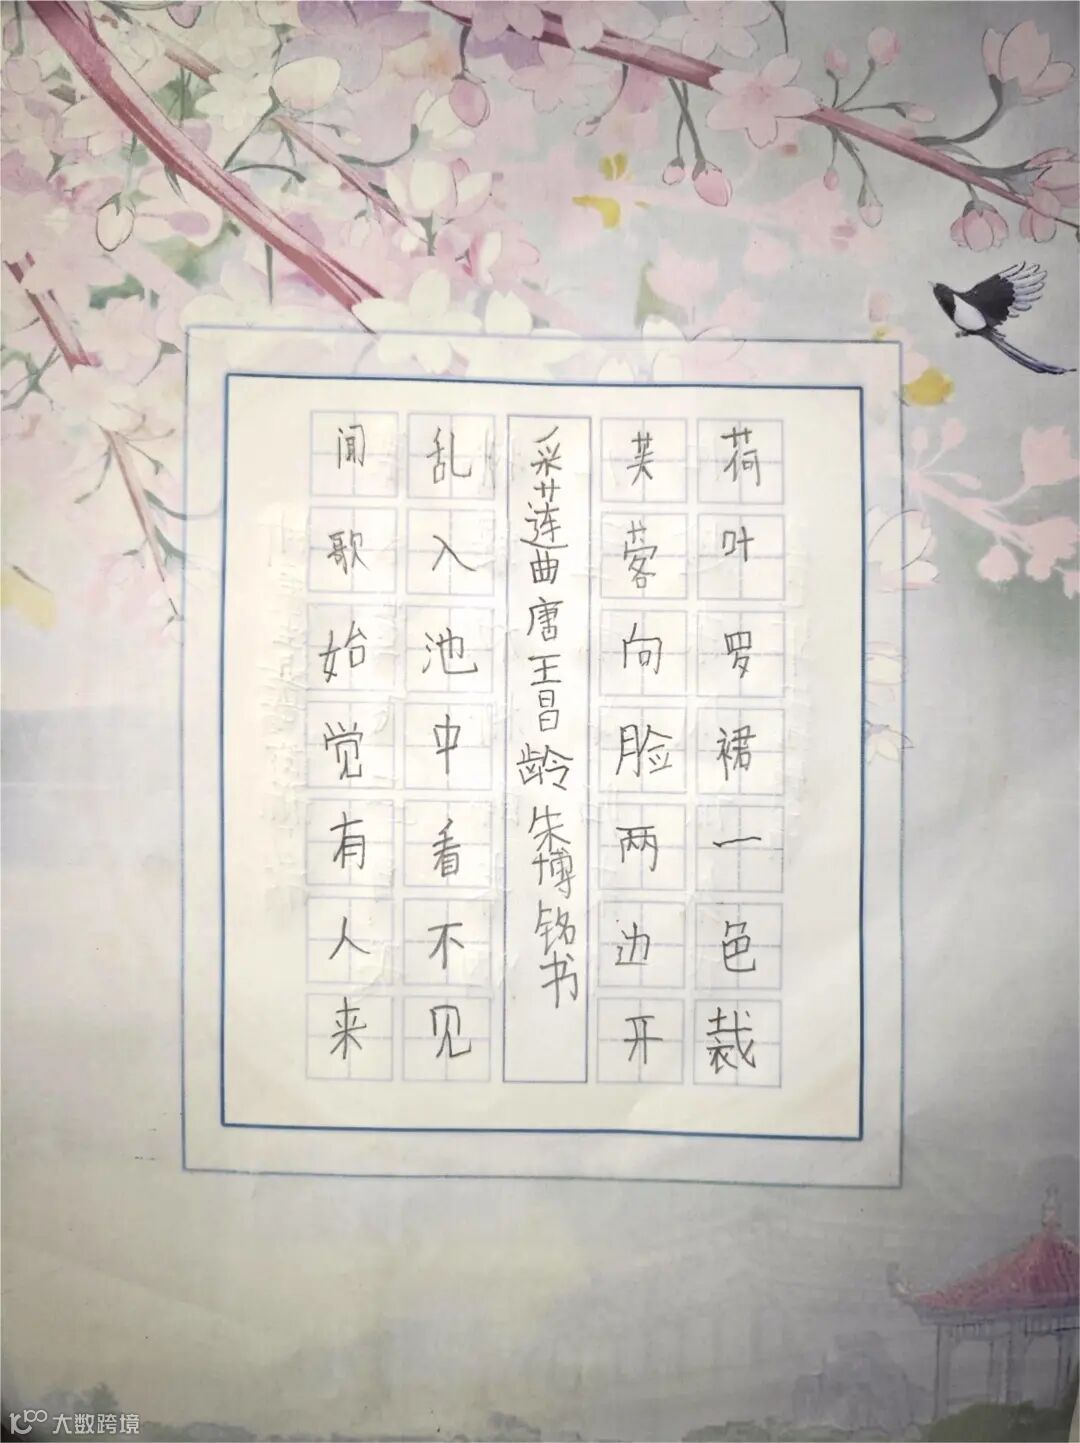 荷叶罗裙一色裁
芙蓉向脸两边开
采莲曲唐王昌龄朱博铭书
乱入池中看不见
闻歌始觉有人来
大数跨境